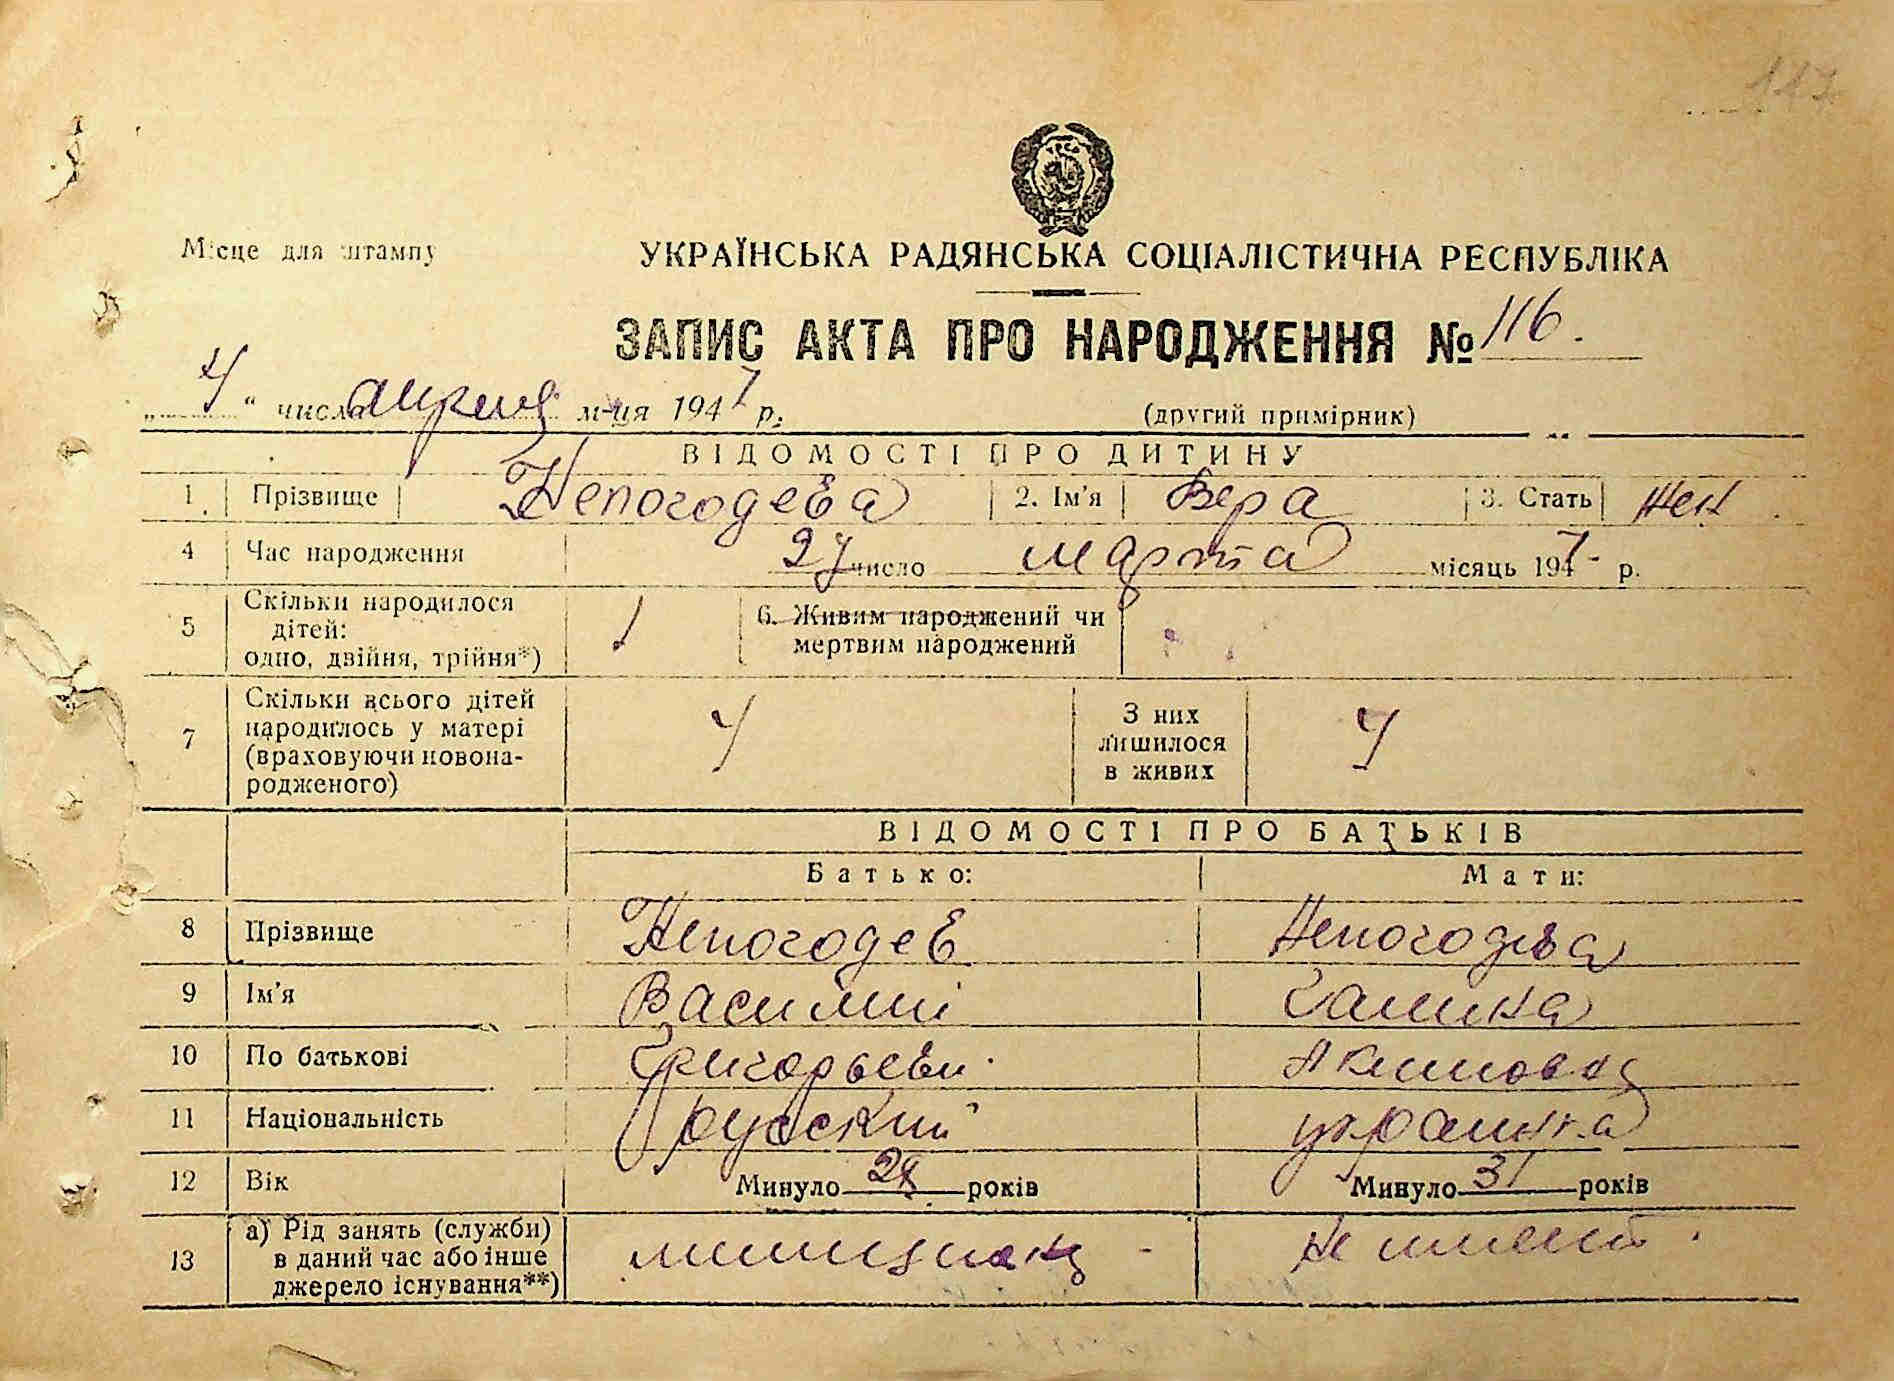 Місце для штампу
УКРАЇНСЬКА РАДЯНСЬКА СОЦІАЛІСТИЧНА РЕСПУБЛІКА
ЗАПИС АКТА ПРО НАРОДЖЕННЯ № 116.
„ 4 “ числа апреля м-ця 1947 р.
(другий примірник)
ВІДОМОСТІ ПРО ДИТИНУ
1 Прізвище Непогодева 2. Ім'я Вера 3. Стать жен
4 Час народження 27 число марта місяць 1947 р.
5 Скільки народилося дітей: одно, двійня, трійня*) 1 6. Живим народжений чи мертвим народжений
7 Скільки всього дітей народилось у матері (враховуючи новонародженого) 4 З них лишилося в живих 4
ВІДОМОСТІ ПРО БАТЬКІВ
Батько: Мати:
8 Прізвище Непогодев Непогодева
9 Ім'я Василий Галина
10 По батькові Григорьеви Акимовна
11 Національність русский украинка
12 Вік Минуло 28 років Минуло 31 років
13 а) Рід занять (служби) в даний час або інше джерело існування**) милиционер Не имеет